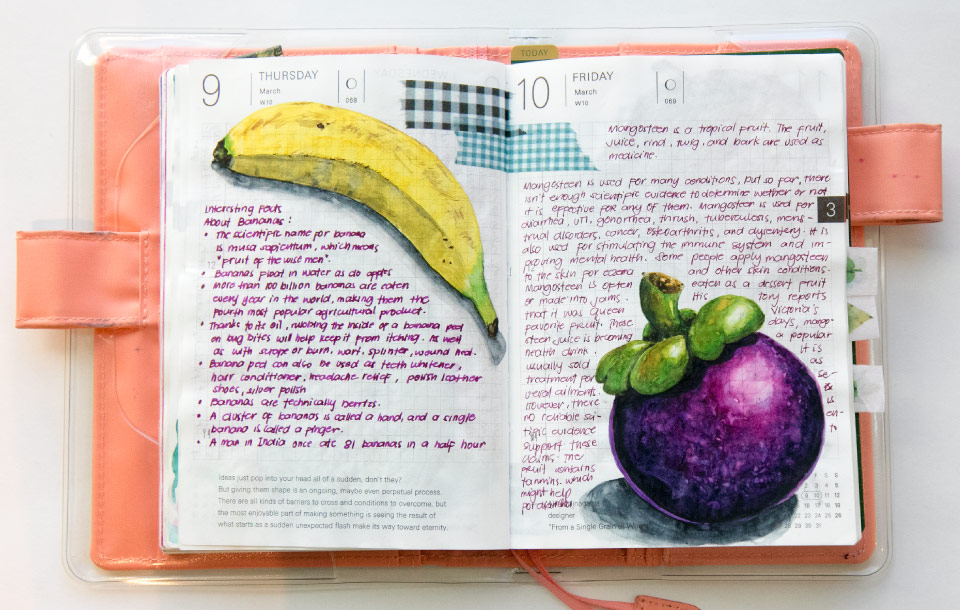 TODAY
9 THURSDAY
March
W10
069
Interesting Facts
About Bananas:
• The scientific name for banana
is musa sapientum, which means
"fruit of the wise men".
• Bananas float in water as do apples
• More than 100 billion bananas are eaten
every year in the world, making them the
fourth most popular agricultural product.
• Thanks to its oil, rubbing the inside of a banana peel
on bug bites will help keep it from itching. As well
as with scrape or burn, wart, splinter, wound heal.
• Banana peel can also be used as teeth whitener,
hair conditioner, headache relief, polish leather
shoes, silver polish
• Bananas are technically berries.
• A cluster of bananas is called a hand, and a single
banana is called a finger.
• A man in India once ate 81 bananas in a half hour
Ideas just pop into your head all of a sudden, don't they?
But giving them shape is an ongoing, maybe even perpetual process.
There are all kinds of barriers to cross and conditions to overcome, but
the most enjoyable part of making something is seeing the result of
what starts as a sudden unexpected flash make its way toward eternity.
10 FRIDAY
March
W10
069
Mangosteen is a tropical fruit. The fruit,
juice, rind, twig, and bark are used as
medicine.
Mangosteen is used for many conditions, but so far, there
isn't enough scientific evidence to determine wether or not
it is effective for any of them. Mangosteen is used for
diarrhea, UTI, gonorrhea, thrush, tuberculosis, mens-
trual disorders, cancer, osteoarthritis, and dysentery. It is
also used for stimulating the immune system and im-
proving mental health. Some people apply mangosteen
to the skin for eczema and other skin conditions.
Mangosteen is often eaten as a dessert fruit
or made into jams. His tory reports
that it was Queen Victoria's
favorite fruit. These days, mango-
steen juice is becoming a popular
health drink. It is
usually sold as
treatment for se-
veral ailments. &
However, there is
no reliable sci- en-
tific evidence to
support these
claims. The
fruit contains
tannins which
might help
for diarrhea
designer
"From a Single Grain of
3